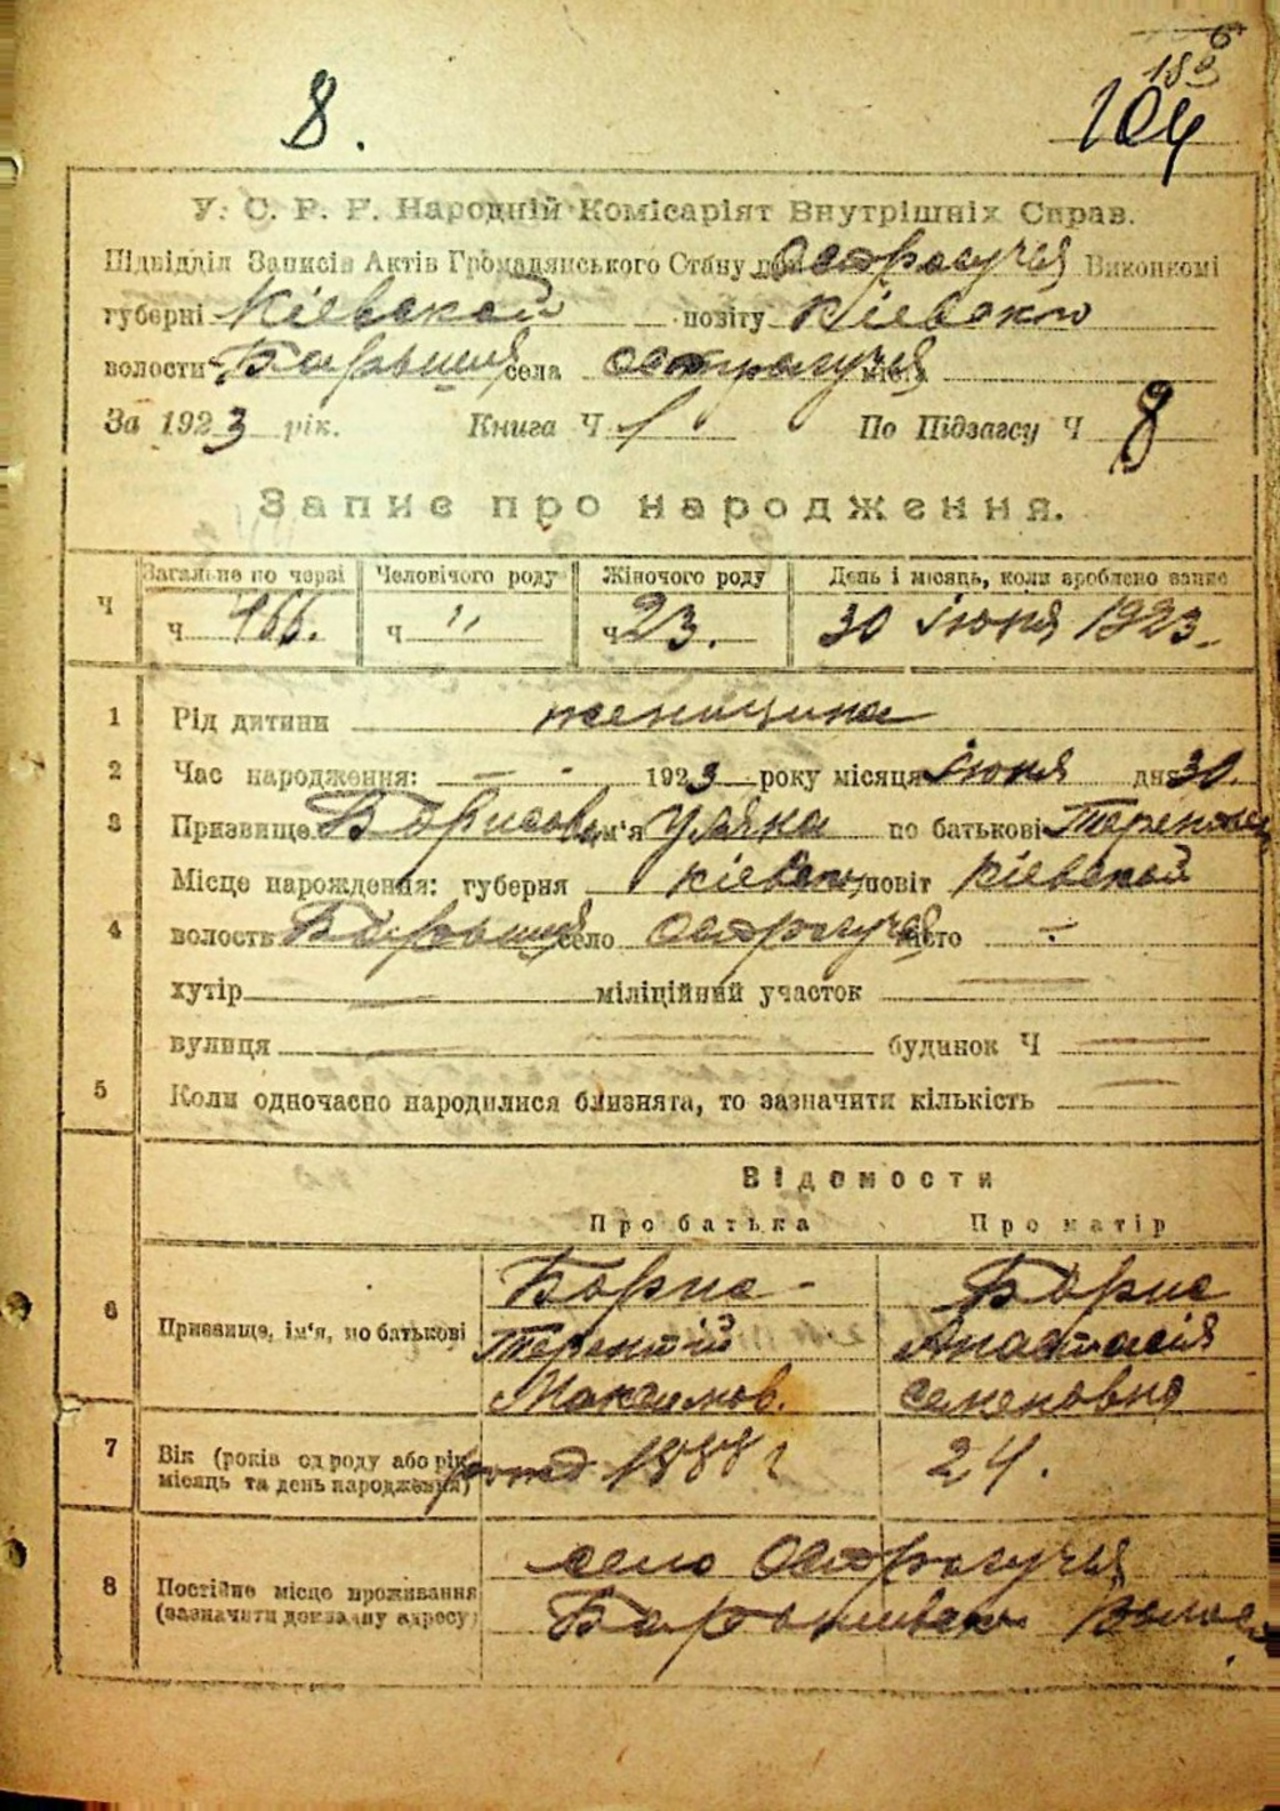 6
183
8.
104
У. С. Р. Р. Народній Комісаріят Внутрішніх Справ.
Підвідділ Записів Актів Громадянського Стану при Остролучья Виконкомі
губерні Кіевской повіту Кіевского
волости Барыш села Остролучья міста
За 1923 рік. Книга Ч 1 По Підзагсу Ч 8
Запис про народження.
Загальне по черзі Человічого роду Жіночого роду День і місяць, коли зроблено запис
Ч ч 466. ч " ч 23. 30 Іюня 1923.
1 Рід дитини женщина
2 Час народження: 1923 року місяця Іюня дня 30.
3 Призвище Борисова ім'я по батькові
Місце народження: губерня Кіевск повіт Кіевской
4 волость Барыш село Остролучья місто -
хутір міліційний участок
вулиця будинок Ч
5 Коли одночасно народилися близнята, то зазначити кількість
Відомости
Про батька Про матір
6 Призвище, ім'я, по батькові Борис - Борис
Терентій Анастасія
Максимов. Семеновна
7 Вік (років од роду або рік, місяць та день народження) 1888 г 24.
8 Постійне місце проживання (зазначити докладну адресу) село Остролучья
Барышевск Волос